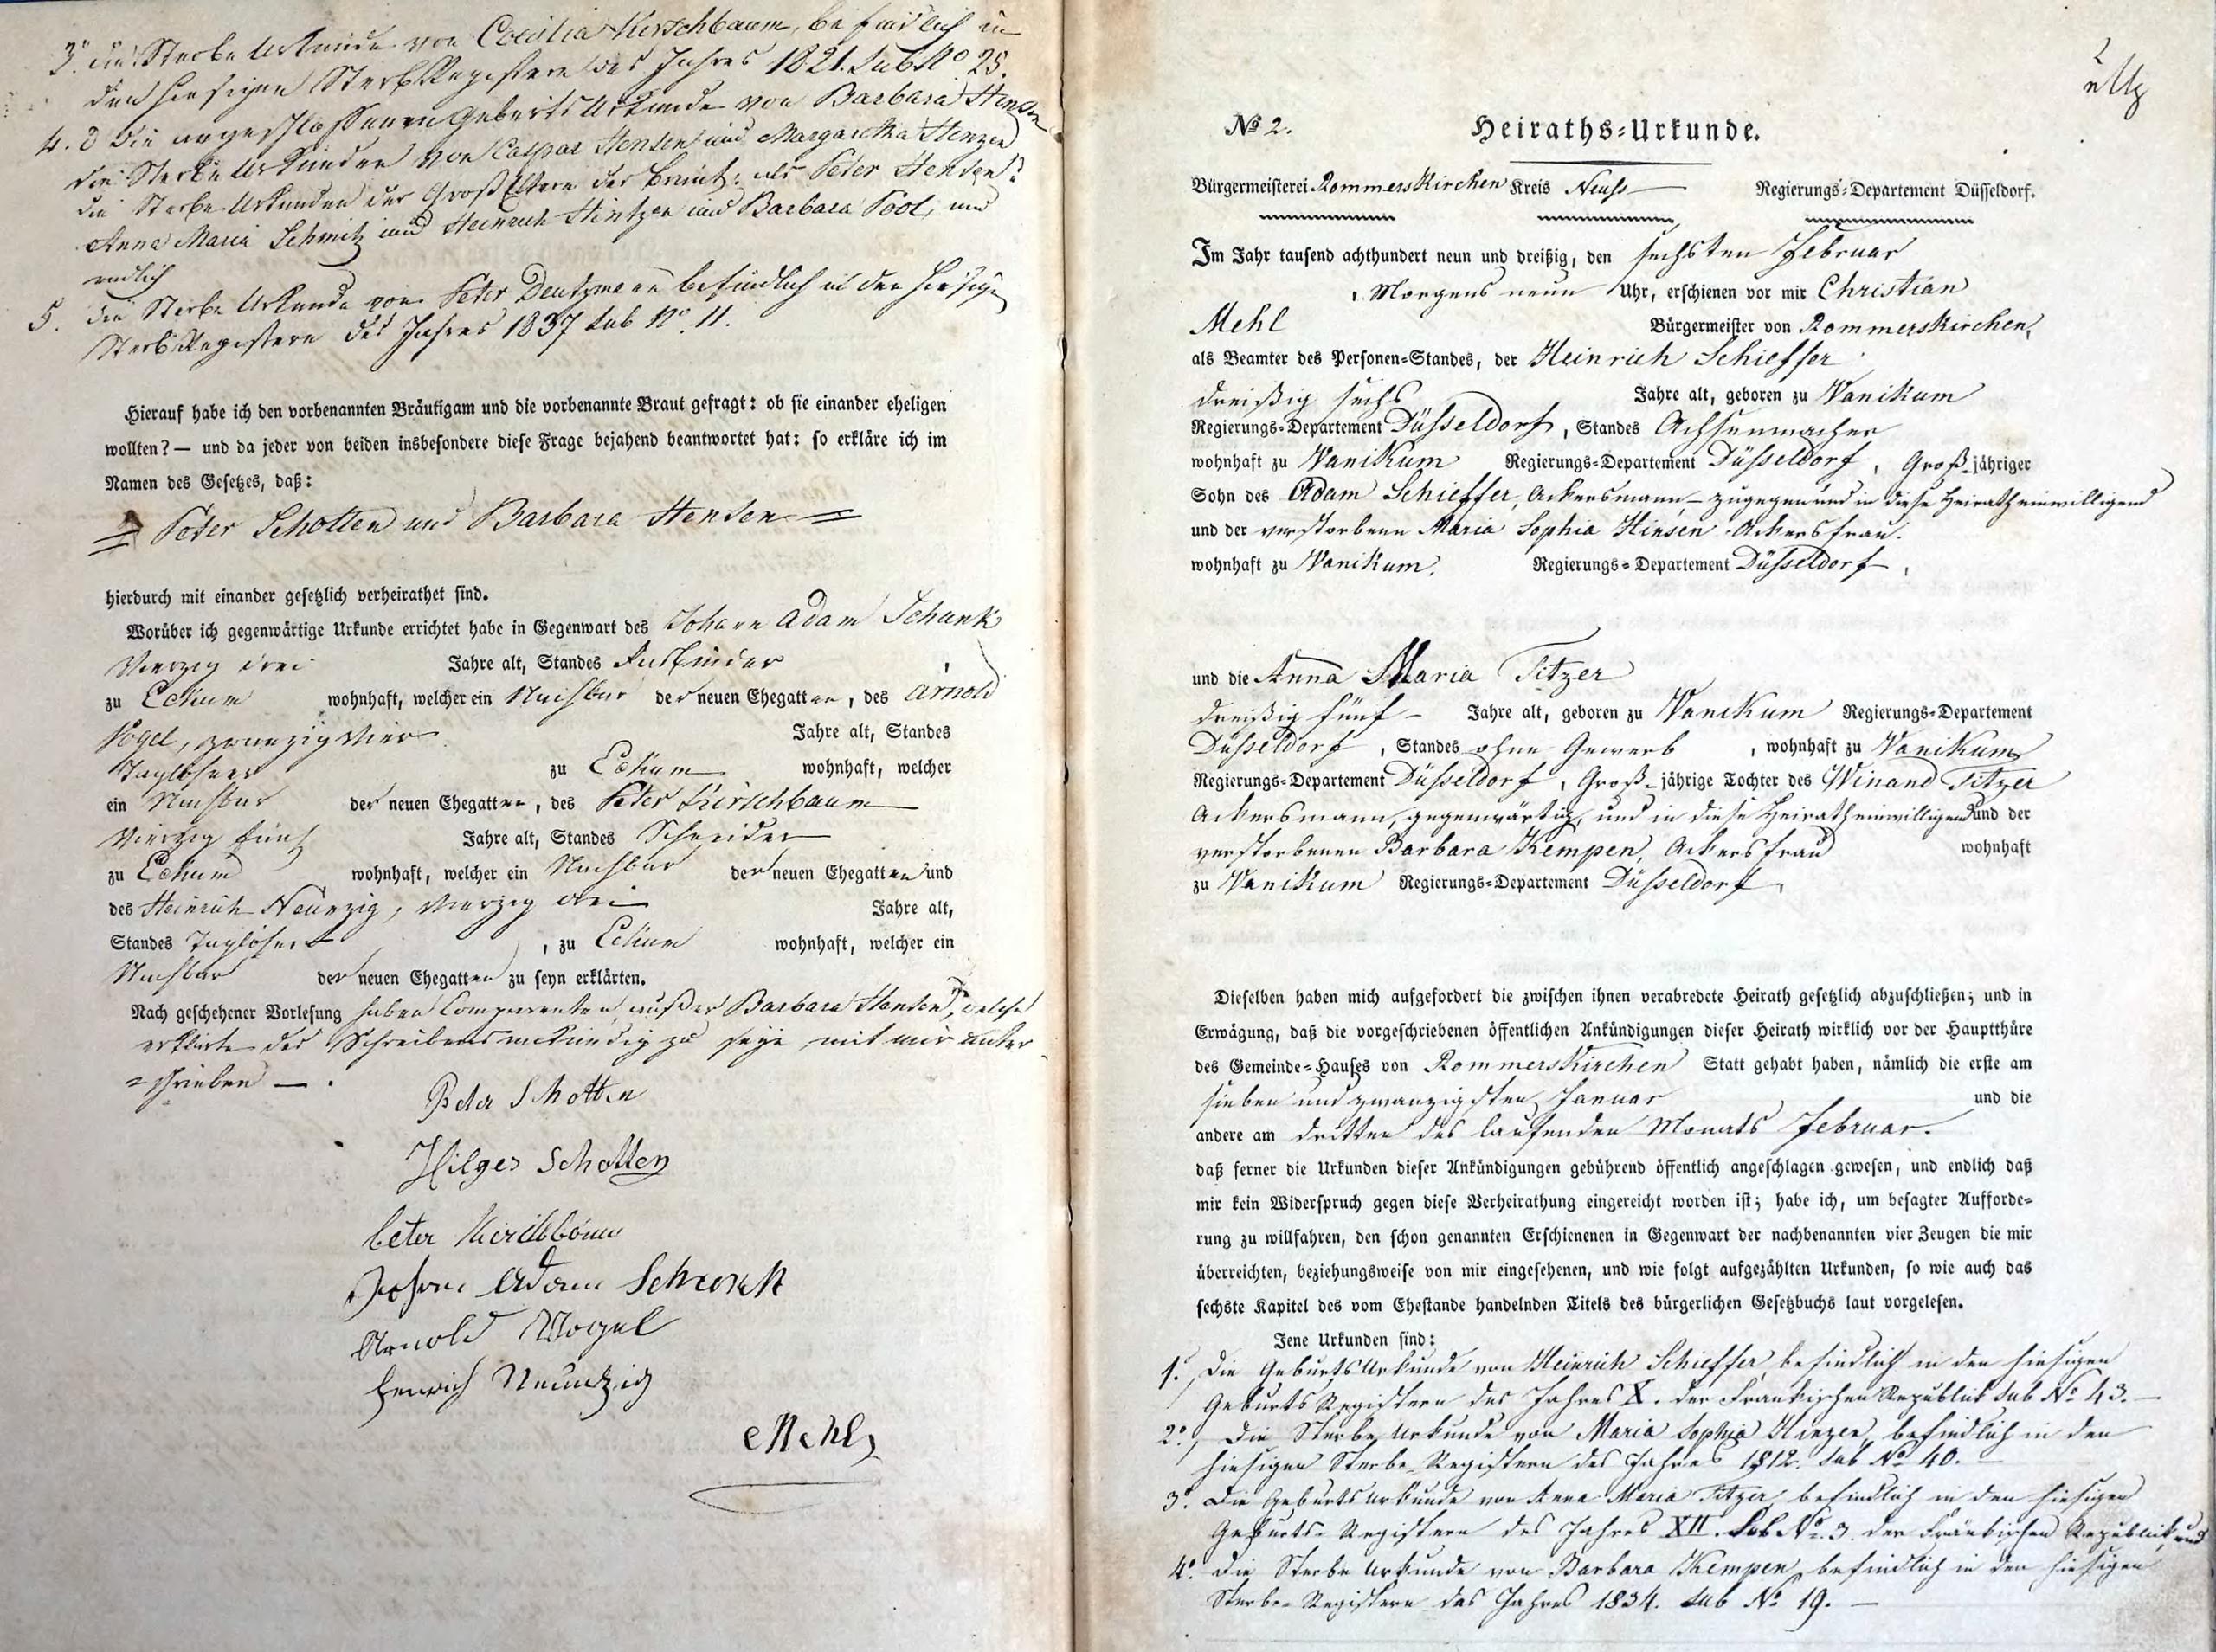 3. die Sterbe Urkunde von Coecilia Kirschbaum, befindlich in
den hiesigen Sterb Registern des Jahres 1821. sub No 25.
4. die angeschlossenen Geburts Urkunde von Barbara Hensen
die Sterbe Urkunden von Caspar Hensen und Margaretha Henzen
die Sterbe Urkunden der Groß Eltern der Braut: als Peter Hensen
Anna Maria Schmitz und Heinrich Hintzen und Barbara Pool, und
endlich
5. die Sterbe Urkunde von Peter Deutzmann befindlich in den hiesigen
Sterbe Registern des Jahres 1837 sub No. 11.
Hierauf habe ich den vorbenannten Bräutigam und die vorbenannte Braut gefragt: ob sie einander eheligen
wollten? — und da jeder von beiden insbesondere diese Frage bejahend beantwortet hat: so erkläre ich im
Namen des Gesetzes, daß:
Peter Schotten und Barbara Hensen
hierdurch mit einander gesetzlich verheirathet sind.
Worüber ich gegenwärtige Urkunde errichtet habe in Gegenwart des Johann Adam Schunk
vierzig drei Jahre alt, Standes Faßbinder
zu Eckum wohnhaft, welcher ein Nachbar der neuen Ehegatten, des Arnold
Vogel, zwanzig vier Jahre alt, Standes
Taglöhner zu Eckum wohnhaft, welcher
ein Nachbar der neuen Ehegatten, des Peter Kirschbaum
vierzig fünf Jahre alt, Standes Schneider
zu Eckum wohnhaft, welcher ein Nachbar der neuen Ehegatten und
des Heinrich Neunzig, vierzig drei Jahre alt,
Standes Taglöhner, zu Eckum wohnhaft, welcher ein
Nachbar der neuen Ehegatten zu seyn erklärten.
Nach geschehener Vorlesung haben Comparenten, außer Barbara Hensen, welche
erklärte des Schreibens unkündig zu seyn mit mir unter
=schrieben —.
Peter Schotten
Hilger Schotten
Peter Kirschbaum
Johann Adam Schunk
Arnold Vogel
Henrich Neuntzig
Mehl
№ 2. Heiraths-Urkunde.
Bürgermeisterei Rommerskirchen Kreis Neuss Regierungs-Departement Düsseldorf.
Im Jahr tausend achthundert neun und dreißig, den sechsten Februar
Morgens neun Uhr, erschienen vor mir Christian
Mehl Bürgermeister von Rommerskirchen,
als Beamter des Personen-Standes, der Heinrich Schieffer
dreißig sechs Jahre alt, geboren zu Vanikum
Regierungs-Departement Düsseldorf, Standes Achsenmacher
wohnhaft zu Vanikum Regierungs-Departement Düsseldorf, Groß-jähriger
Sohn des Adam Schieffer, Ackersmann, zugegen und in diese Heirath einwilligend
und der verstorbenen Maria Sophia Hinsen Ackersfrau.
wohnhaft zu Vanikum. Regierungs-Departement Düsseldorf,
und die Anna Maria Titzer
dreißig fünf – Jahre alt, geboren zu Vanikum Regierungs-Departement
Düsseldorf, Standes ohne Gewerb, wohnhaft zu Vanikum
Regierungs-Departement Düsseldorf, Groß-jährige Tochter des Winand Titzer
Ackersmann, gegenwärtig, und in diese Heirath einwilligend und der
verstorbenen Barbara Kempen, Ackersfrau wohnhaft
zu Vanikum Regierungs-Departement Düsseldorf,
Dieselben haben mich aufgefordert die zwischen ihnen verabredete Heirath gesetzlich abzuschließen; und in
Erwägung, daß die vorgeschriebenen öffentlichen Ankündigungen dieser Heirath wirklich vor der Hauptthüre
des Gemeinde-Hauses von Rommerskirchen Statt gehabt haben, nämlich die erste am
sieben und zwanzigsten Januar und die
andere am dritten des laufenden Monats Februar.
daß ferner die Urkunden dieser Ankündigungen gebührend öffentlich angeschlagen gewesen, und endlich daß
mir kein Widerspruch gegen diese Verheirathung eingereicht worden ist; habe ich, um besagter Aufforde-
rung zu willfahren, den schon genannten Erschienenen in Gegenwart der nachbenannten vier Zeugen die mir
überreichten, beziehungsweise von mir eingesehenen, und wie folgt aufgezählten Urkunden, so wie auch das
sechste Kapitel des vom Ehestande handelnden Titels des bürgerlichen Gesetzbuchs laut vorgelesen.
Jene Urkunden sind:
1. Die Geburts Urkunde von Heinrich Schieffer, befindlich in den hiesigen
Geburts Registern des Jahres X. der Fränkischen Republik sub No 43. —
2. Die Sterbe Urkunde von Maria Sophia Hinzen, befindlich in den
hiesigen Sterbe-Registern des Jahres 1812. sub No 40. —
3. Die Geburts Urkunde von Anna Maria Titzer, befindlich in den hiesigen
Geburts-Registern des Jahres XII. sub No. 3. der Fränkischen Republik, und
4. Die Sterbe Urkunde von Barbara Kempen, befindlich in den hiesigen
Sterbe-Registern des Jahres 1834. sub No 19. —